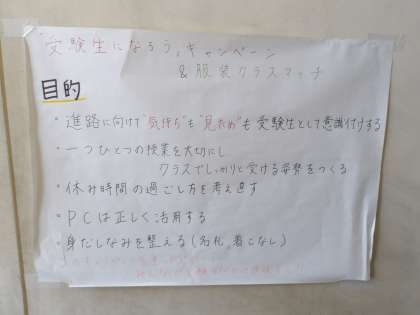 "受験生になろう"キャンペーン
&服装クラスマッチ
目的
・進路に向けて"気持ち"も"見ため"も受験生として意識付けする
・一つひとつの授業を大切にし
クラスでしっかりと受ける姿勢をつくる
・休み時間の過ごし方を考え直す
・PCは正しく活用する
・身だしなみを整える(名札、着こなし)